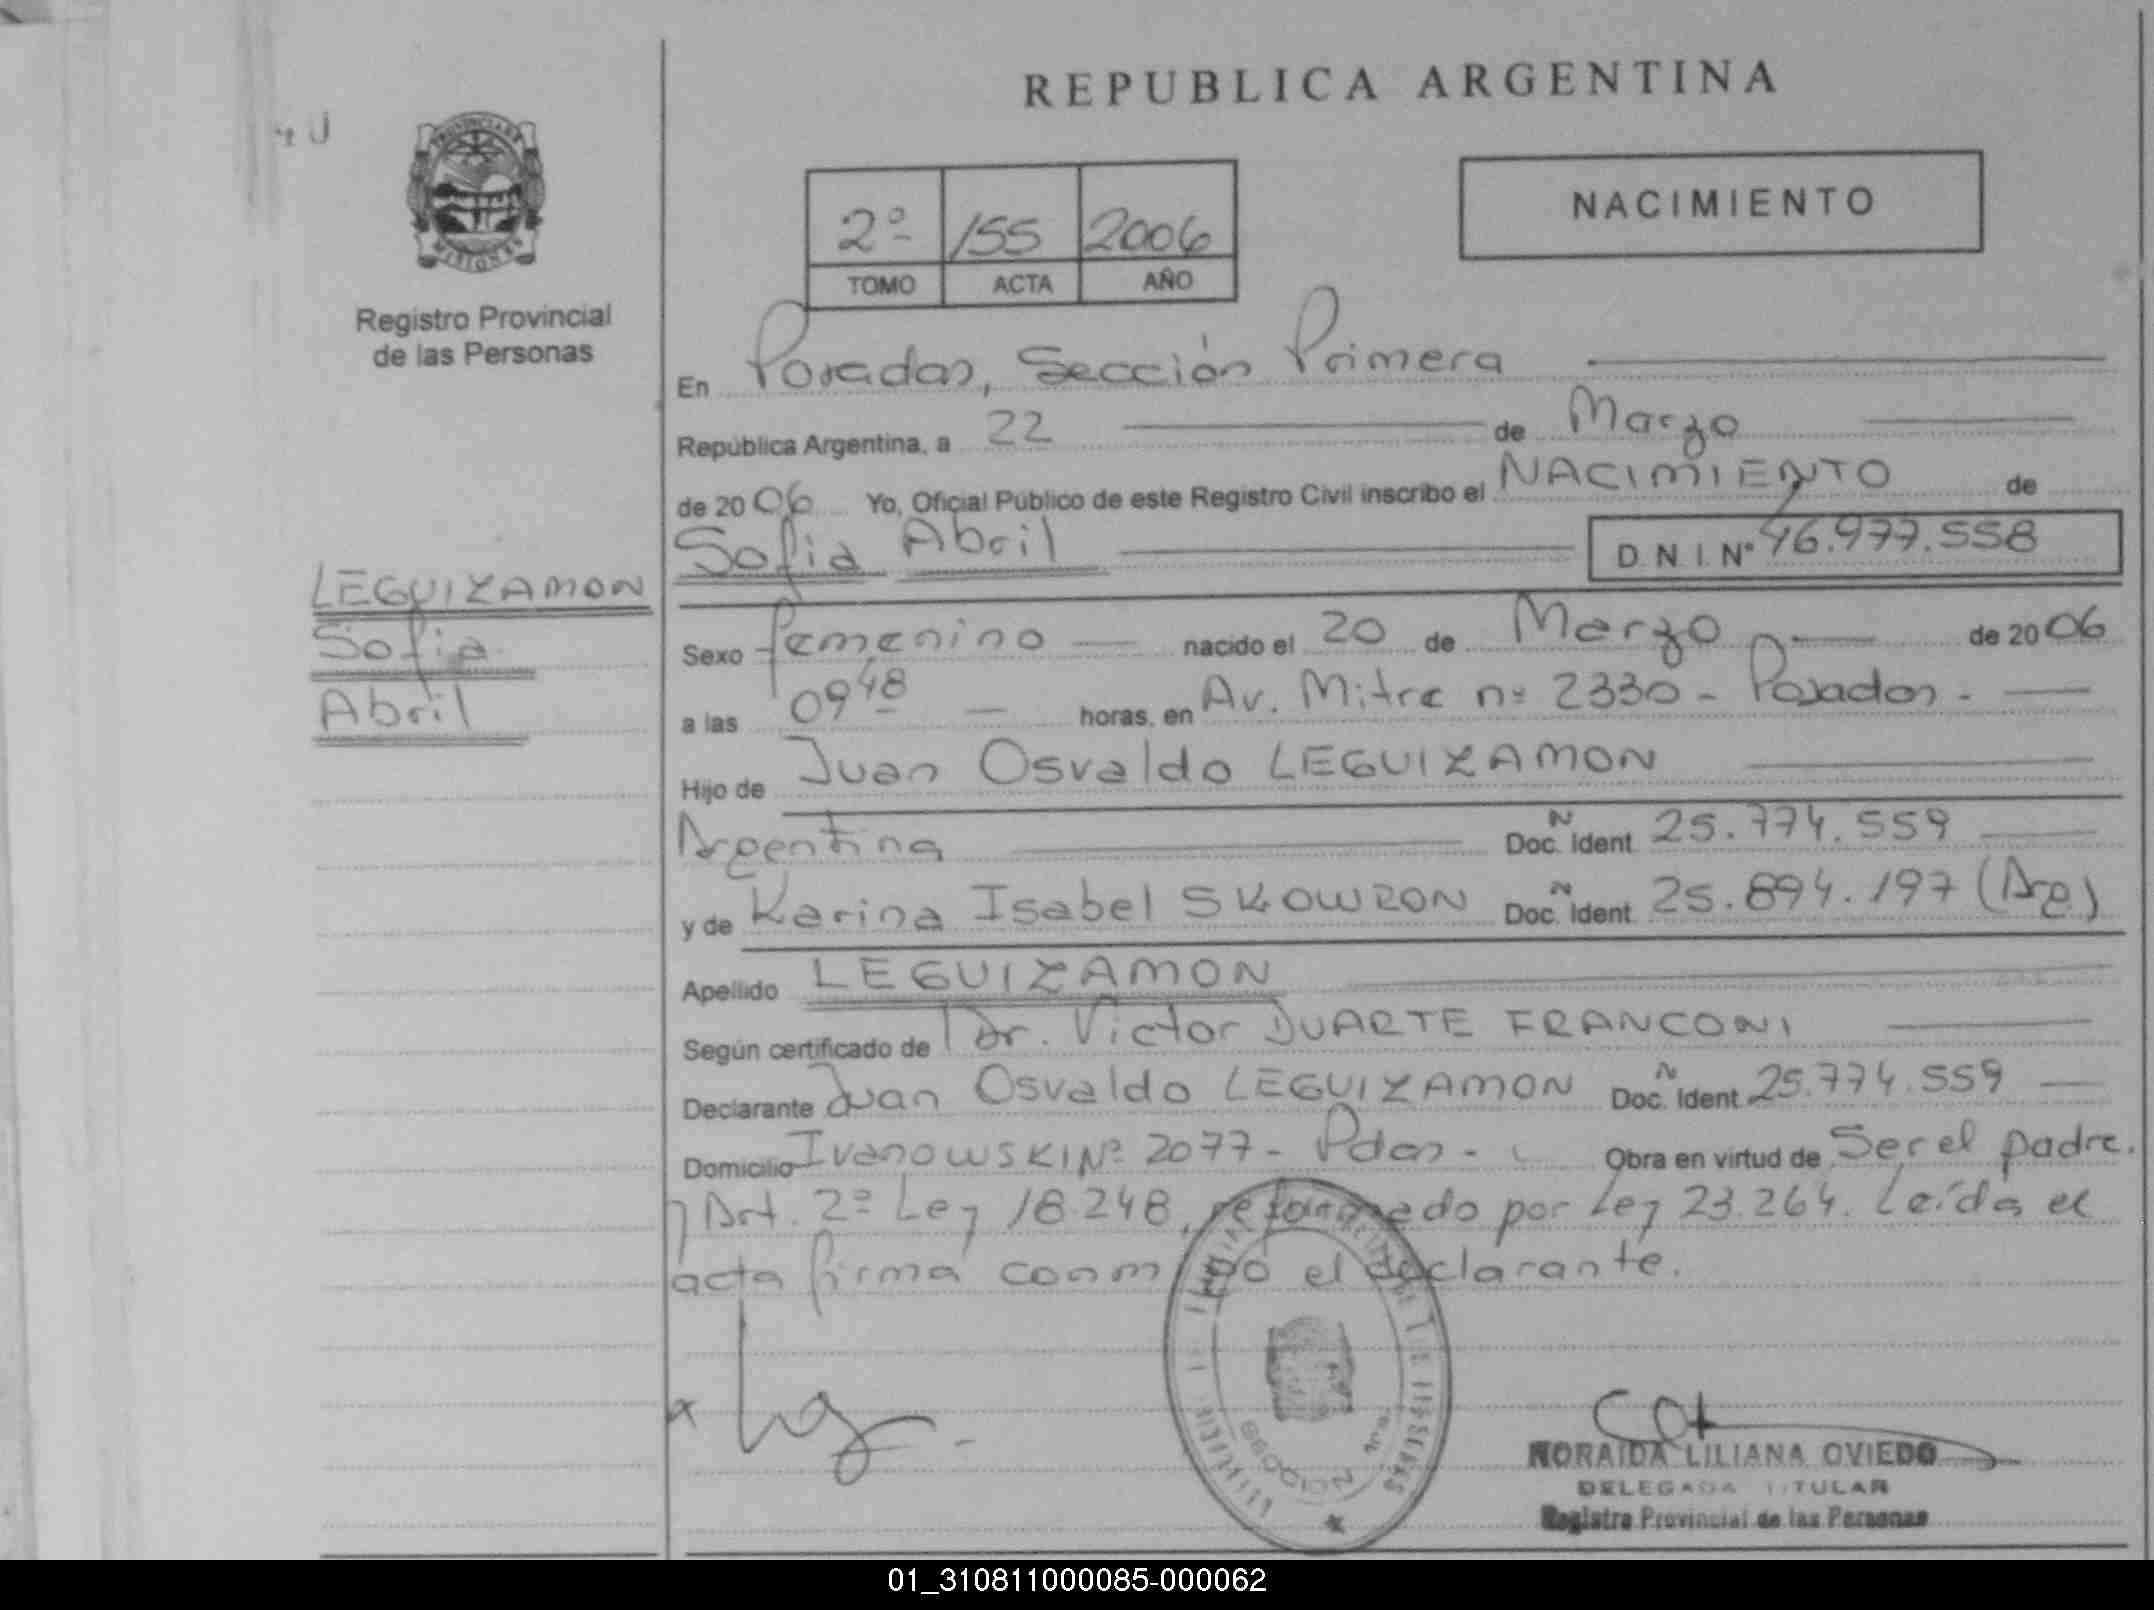 REPUBLICA ARGENTINA
PROVINCIA DE
MISIONES
Registro Provincial
de las Personas
2º 155 2006
TOMO ACTA AÑO
NACIMIENTO
En Posadas, Sección Primera
República Argentina, a 22 de Marzo
de 2006 Yo, Oficial Público de este Registro Civil inscribo el NACIMIENTO de
Sofia Abril D.N.I. Nº 46.977.558
LEGUIZAMON
Sofia
Abril
Sexo femenino nacido el 20 de Marzo de 2006
a las 09 48 horas, en Av. Mitre nº 2330 - Posadas -
Hijo de Juan Osvaldo LEGUIZAMON
Argentina Doc. Ident N 25.774.559
y de Karina Isabel SKOWRON Doc. Ident N 25.894.197 (Arg.)
Apellido LEGUIZAMON
Según certificado de Dr. Victor DUARTE FRANCONI
Declarante Juan Osvaldo LEGUIZAMON Doc. Ident N 25.774.559
Domicilio Ivanowski Nº 2077 - Pdas - Obra en virtud de Ser el padre.
y Art. 2º Ley 18.248, reformado por Ley 23.264. Leída el
acta firma conmigo el declarante.
NORAIDA LILIANA OVIEDO
DELEGADA TITULAR
Registro Provincial de las Personas
01_310811000085-000062